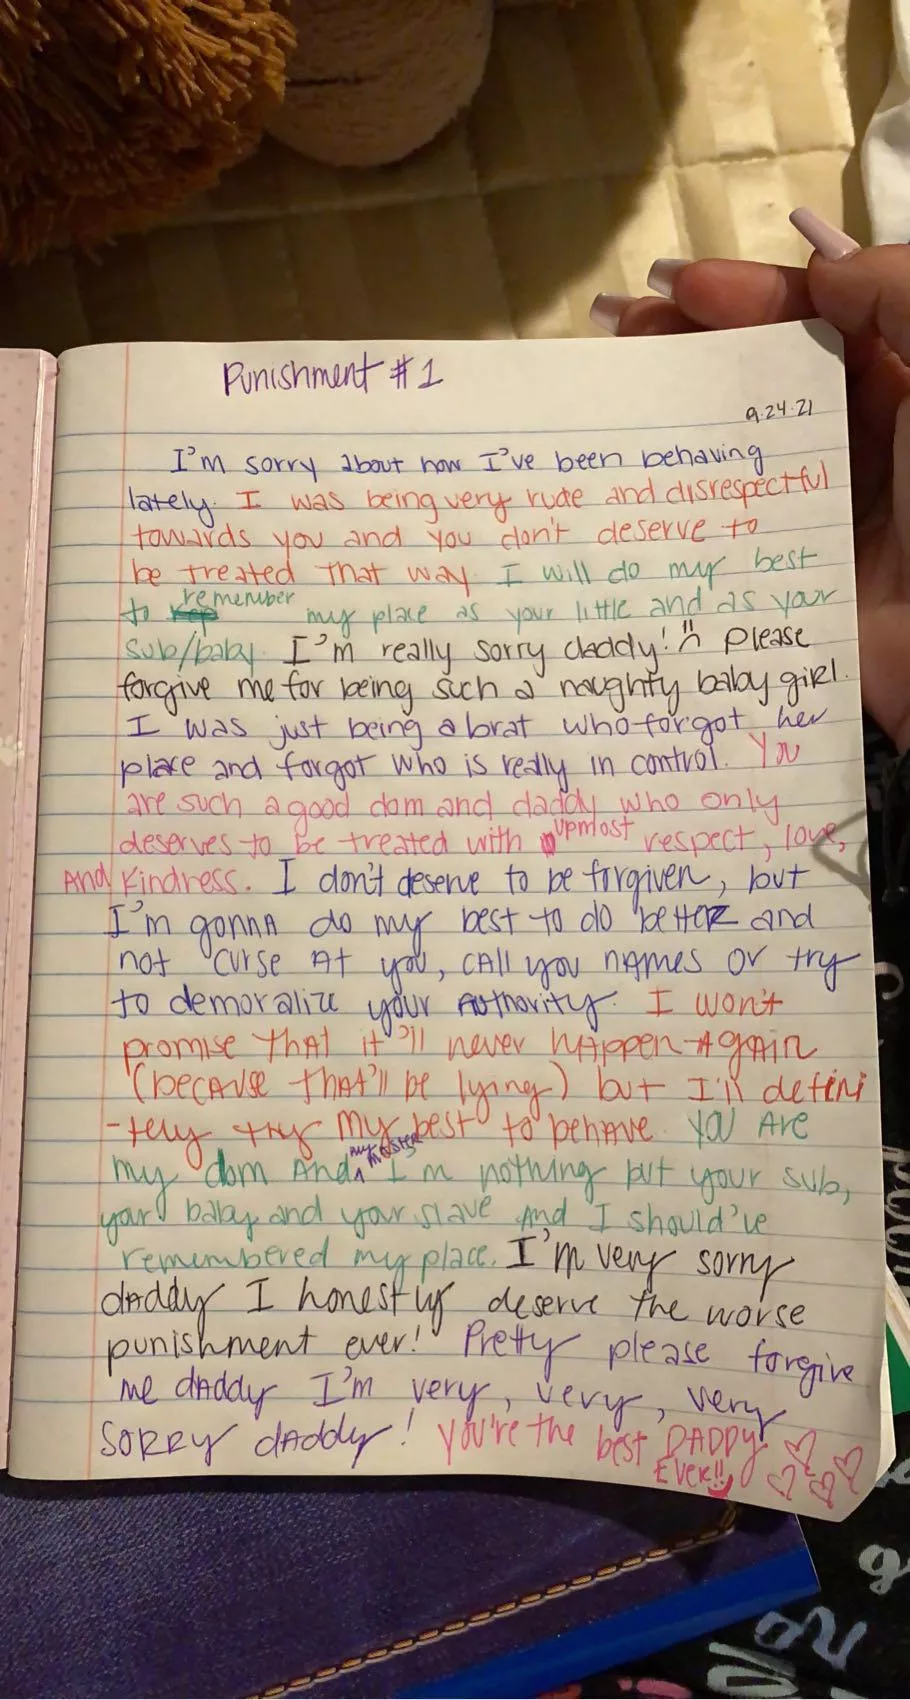 Punishment #1
9.24.21
I'm sorry about how I've been behaving
lately. I was being very rude and disrespectful
towards you and you don't deserve to
be treated that way. I will do my best
to remember my place as your little and as your
sub/baby. I'm really sorry daddy! Please
forgive me for being such a naughty baby girl.
I was just being a brat who forgot her
place and forgot who is really in control. You
are such a good dom and daddy who only
deserves to be treated with upmost respect, love,
And kindness. I don't deserve to be forgiven, but
I'm gonna do my best to do better and
not curse at you, call you names or try
to demoralize your authority. I won't
promise that it'll never happen again
(because that'll be lying) but I'll defini
-tely try my best to behave. You are
my dom and my master I'm nothing but your sub,
your baby and your slave and I should've
remembered my place. I'm very sorry
daddy I honestly deserve the worse
punishment ever! Pretty please forgive
me daddy I'm very, very, very
sorry daddy! You're the best DADDY
EVER!!